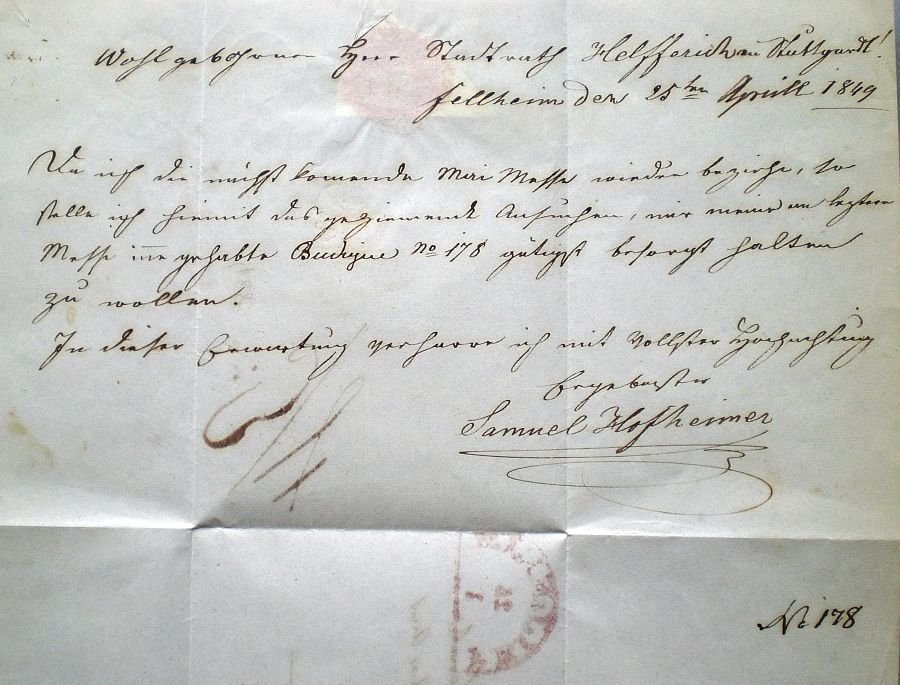 Wohlgebohrner Herr Stadtrath Helfferich in Stuttgardt!
Fellheim den 25ten Aprill 1849
Da ich die nächst komende Mai Messe wieder beziehe, so
stelle ich hiermit das geziemende Ansuchen, mir meine in letzter
Messe inne gehabte Budique No 178 gütigst besorgt halten
zu wollen.
In dieser Erwartung verharre ich mit vollster Hochachtung
Ergebenster
Samuel Hofheimer
No 178